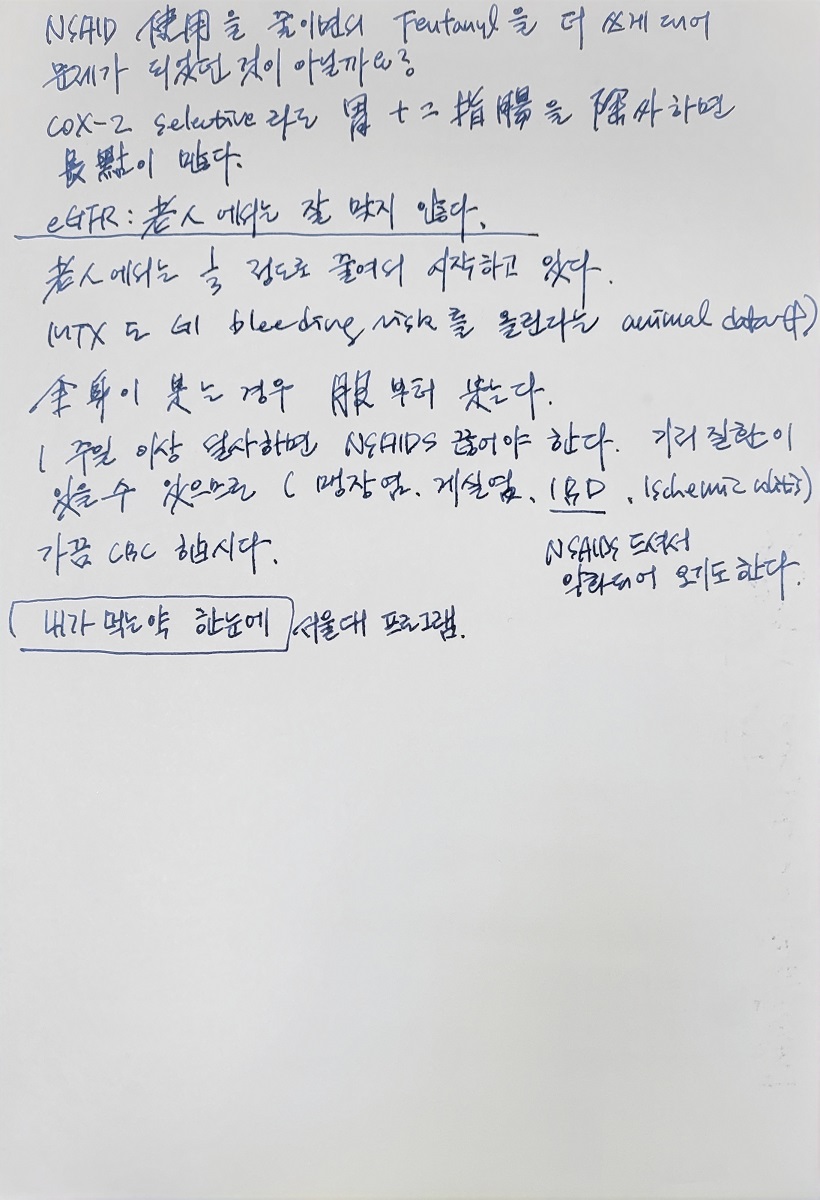 NSAID 使用을 줄이면서 Fentanyl을 더 쓰게 되어
문제가 되었던 것이 아닐까요?
COX-2 selective 라도 胃 十二指腸을 除外하면
長點이 많다.
eGFR: 老人에서는 잘 맞지 않다.
老人에서는 ⅓ 정도로 줄여서 시작하고 있다.
MTX 도 GI bleeding risk를 올린다는 animal data(+)
全身이 붓는 경우 腹부터 붓는다.
1주일 이상 설사하면 NSAIDS 끊어야 한다. 기저 질환이
있을 수 있으므로 (맹장염, 게실염, IBD, Ischemic colitis)
가끔 CBC 합시다.
NSAIDS 드셔서
악화되어 오기도 한다.
내가 먹는 약 한눈에 서울대 프로그램.